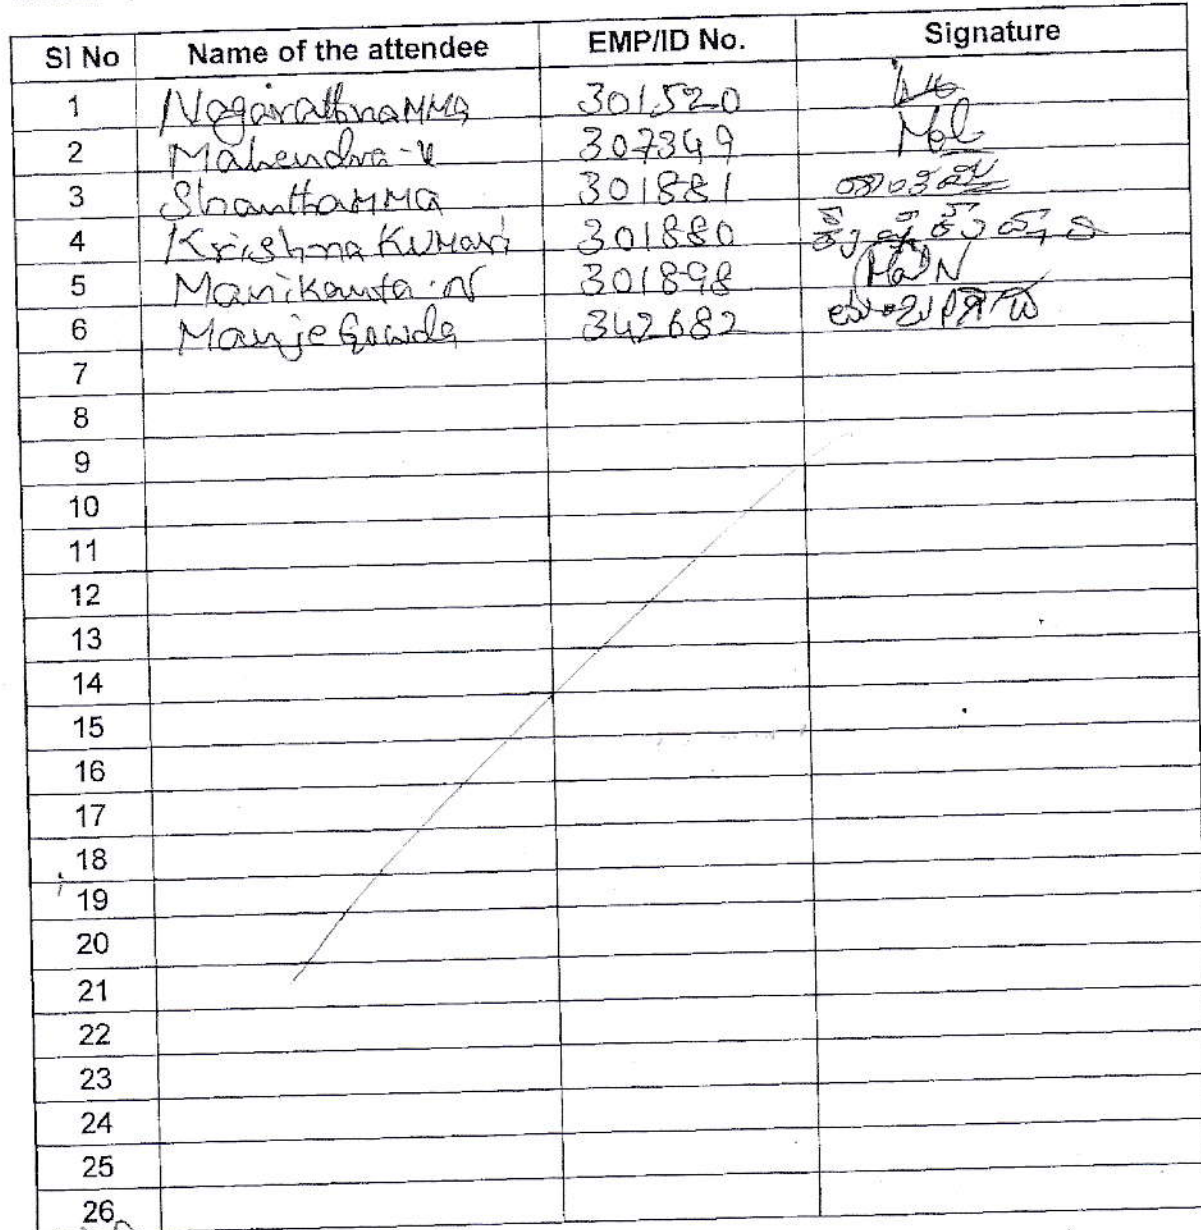 Sl No Name of the attendee EMP/ID No. Signature
1 NagarathnaMMa 301520
2 Mahendra-V 307349
3 ShanthaMMa 301881
4 Krishna KuMari 301880
5 Manikanta.N 301898
6 Manje Gowda 342682
7
8
9
10
11
12
13
14
15
16
17
18
19
20
21
22
23
24
25
26